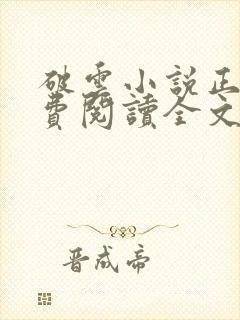 破雲小説正
費閱讀全文
晋成帝